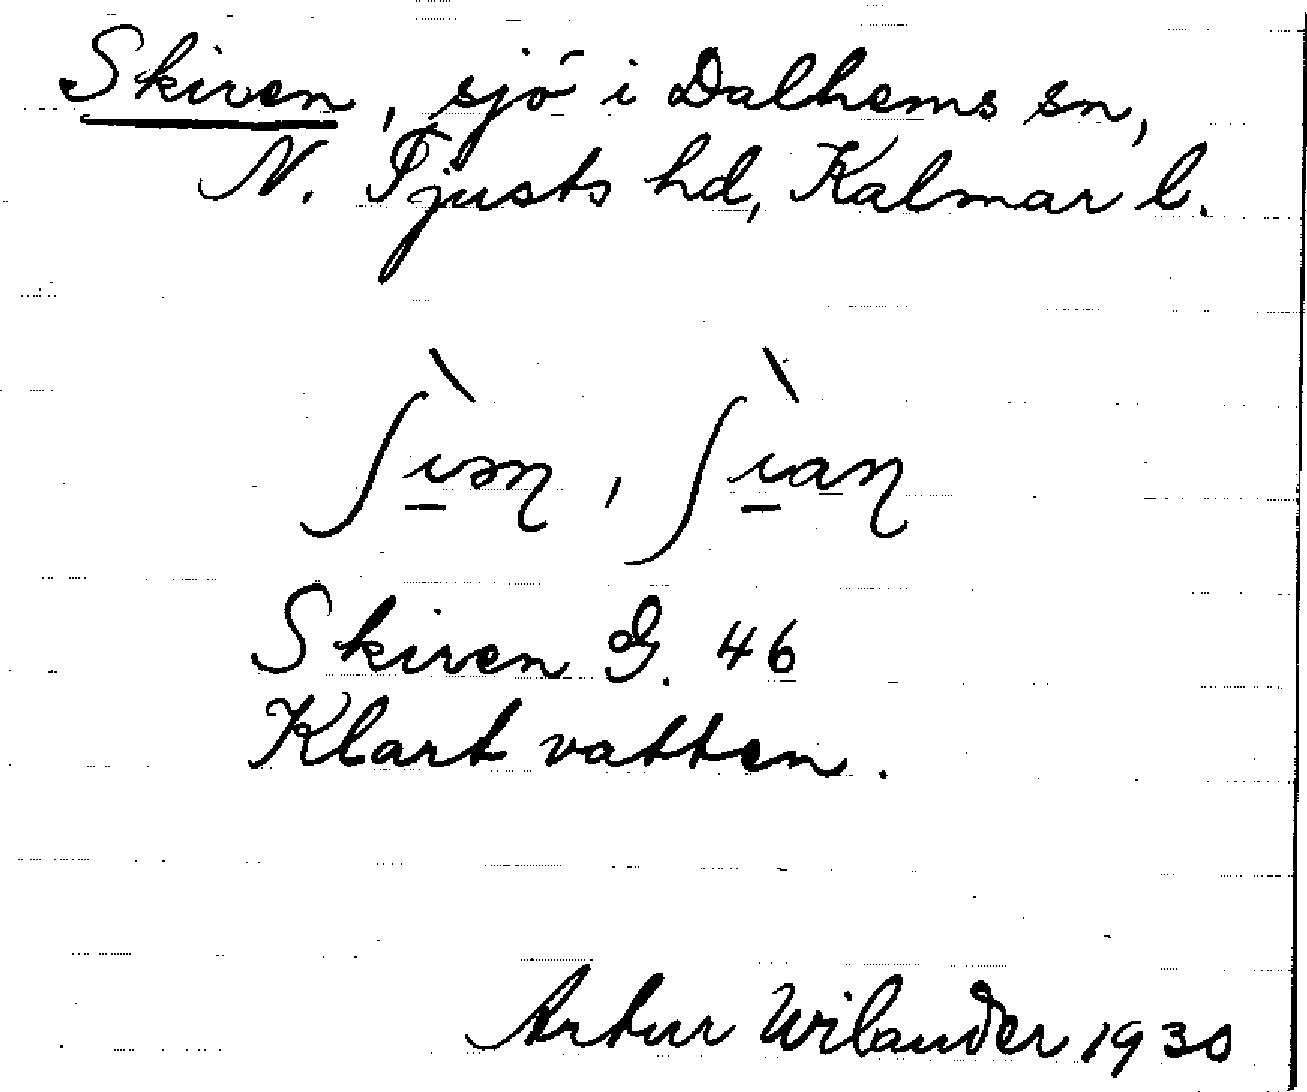 Skiven, sjö i Dalhems sn,
N. Tjusts hd, Kalmar l.
ʃì̱əɳ, ʃì̱aɳ
Skiven G. 46
Klart vatten.
Artur Wilander 1930